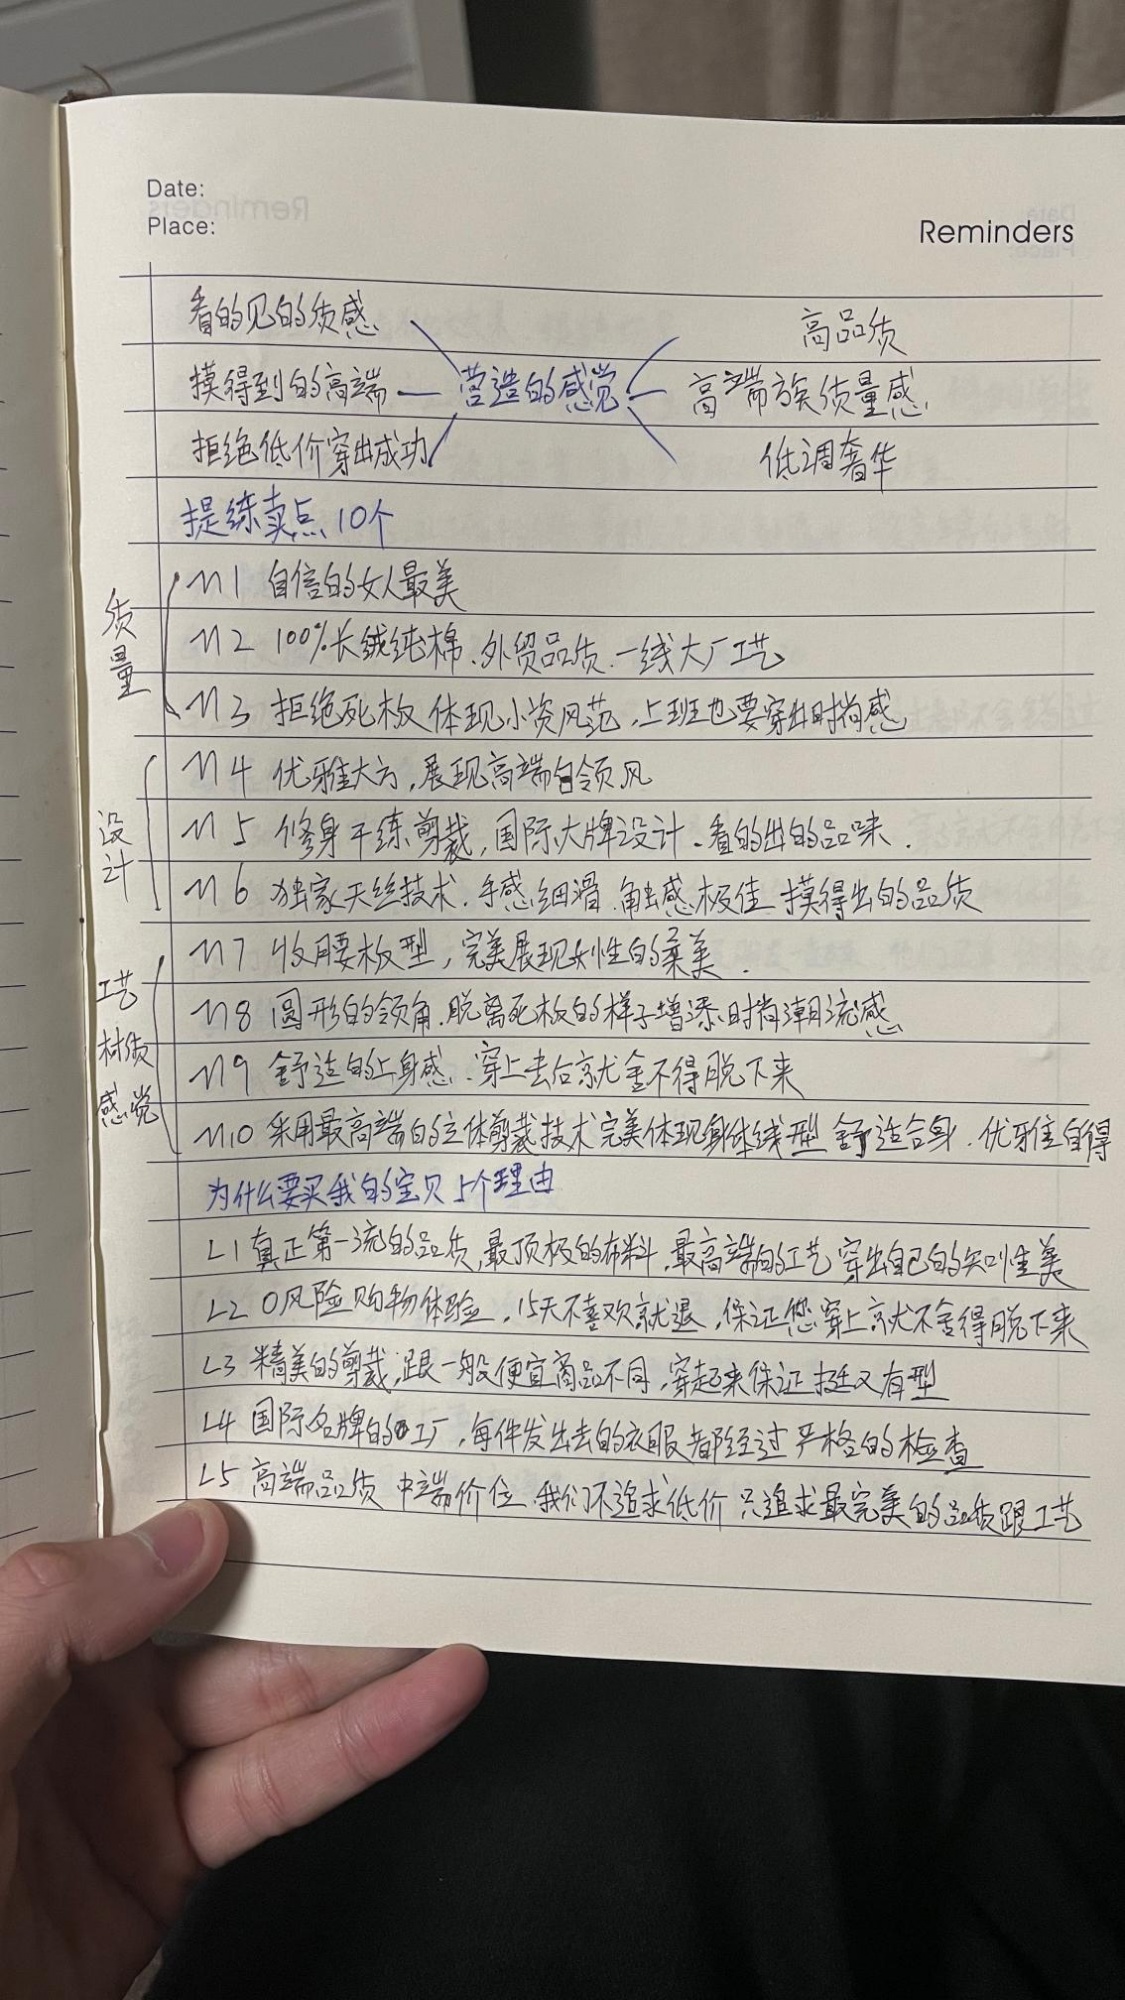 Date:
Place:
Reminders
看的见的质感
高品质
摸得到的高端 — 营造的感觉 高端族质量感
拒绝低价穿出成功
低调奢华
提练卖点 10个
质量
n1 自信的女人最美
n2 100%长绒纯棉、外贸品质、一线大厂工艺
n3 拒绝死板 体现小资风范，上班也要穿出时尚感
设计
n4 优雅大方，展现高端白领风
n5 修身干练剪裁，国际大牌设计、看的出的品味.
n6 独家天丝技术、手感细滑、触感极佳 摸得出的品质
工艺
材质
感觉
n7 收腰板型，完美展现女性的柔美.
n8 圆形的领角、脱离死板的样子增添时尚潮流感
n9 舒适的上身感、穿上去后就舍不得脱下来
n10 采用最高端的立体剪裁技术完美体现身体线型 舒适合身、优雅自得
为什么要买我的宝贝 5个理由
L1 真正第一流的品质,最顶极的布料,最高端的工艺 穿出自己的知性美
L2 0风险购物体验，15天不喜欢就退，保证您穿上就不舍得脱下来
L3 精美的剪裁,跟一般便宜商品不同,穿起来保证挺又有型
L4 国际名牌的工厂，每件发出去的衣服都经过严格的检查
L5 高端品质 中端价位 我们不追求低价 只追求最完美的品质跟工艺